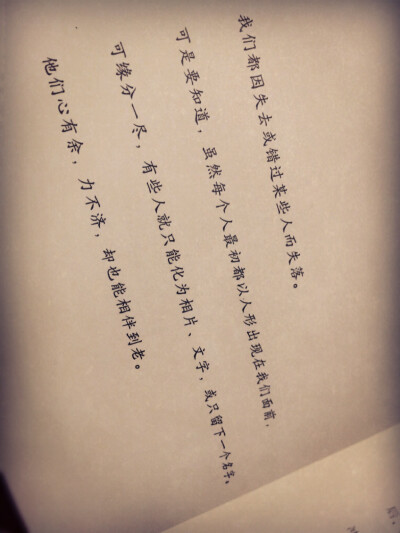 我们都因失去或错过某些人而失落。
可是要知道，虽然每个人最初都以人形出现在我们面前，
可缘分一尽，有些人就只能化为相片、文字，或只留下一个名字。
他们心有余，力不济，却也能相伴到老。